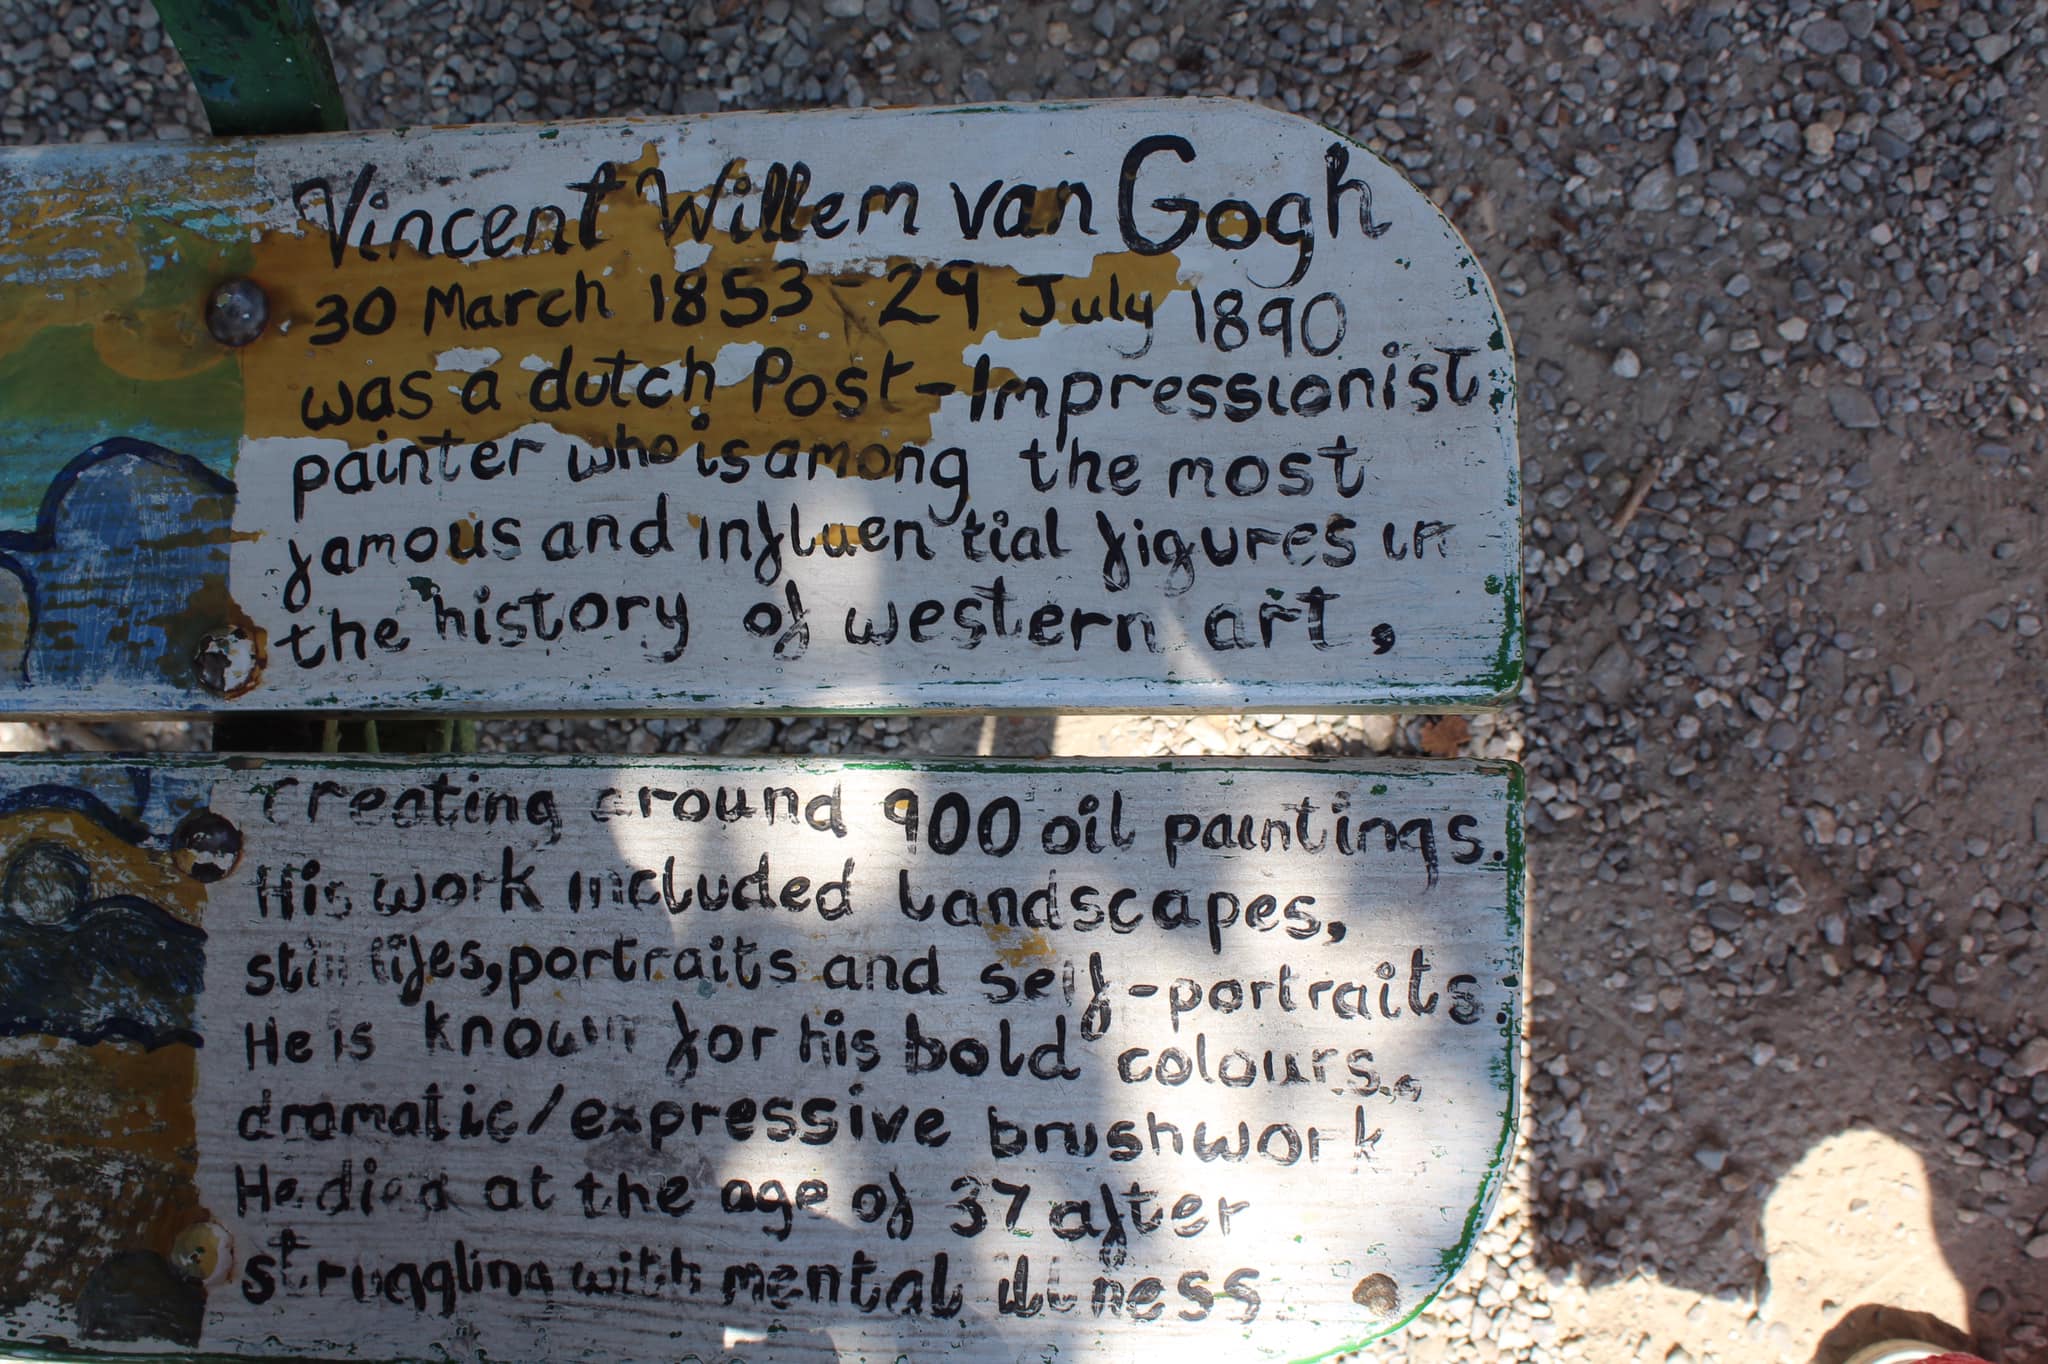 Vincent Willem van Gogh
30 March 1853 - 29 July 1890
was a dutch Post-Impressionist
painter who is among the most
famous and influential figures in
the history of western art,
creating around 900 oil paintings.
His work included landscapes,
still lifes, portraits and self-portraits.
He is known for his bold colours,
dramatic/expressive brushwork
He died at the age of 37 after
struggling with mental illness